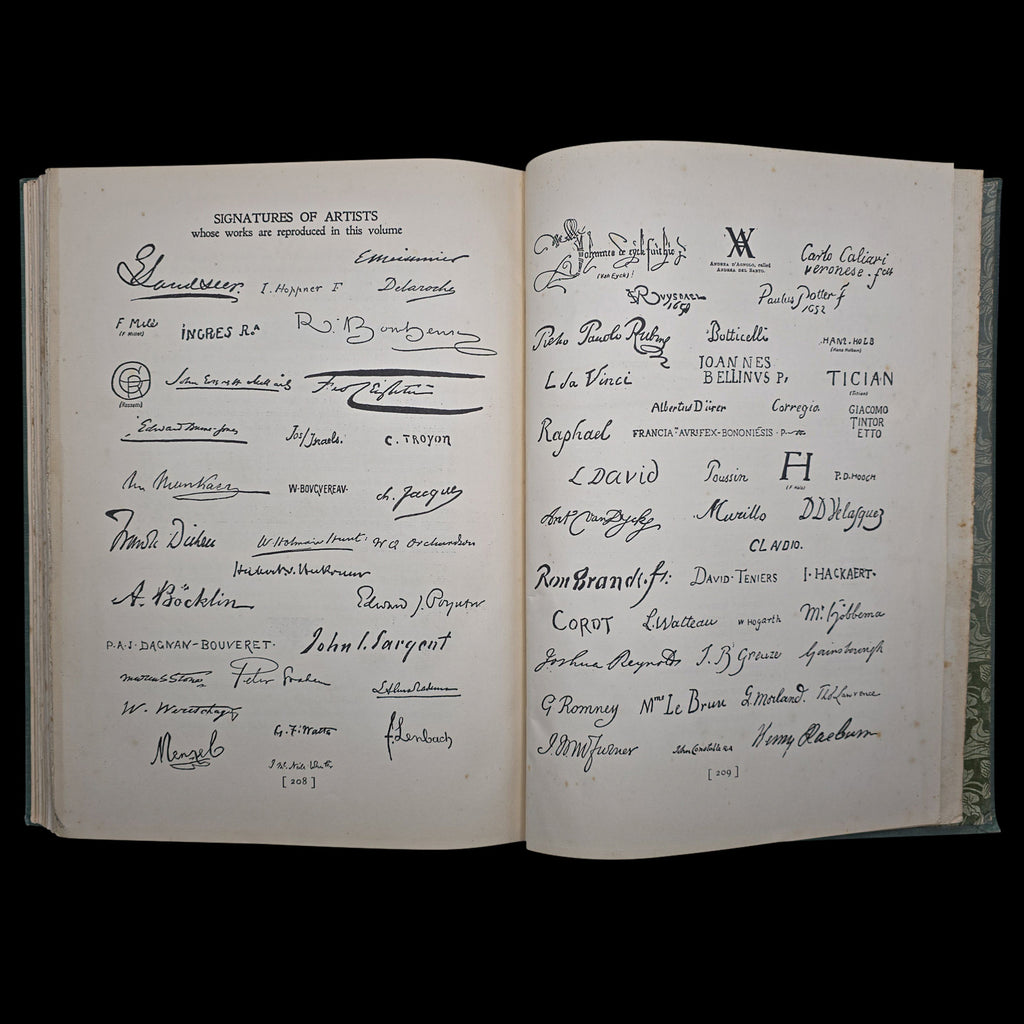 SIGNATURES OF ARTISTS
whose works are reproduced in this volume
E Landseer. I. Hoppner F EMeissonier Delaroche
F. Milet (F Millet) INGRES R.A R. Bonheur
(Rossetti) John Everett Millais Fred Leighton
Edward Burne-Jones Jos/Israels. C. TROYON
W·BOVGVEREAV· ch. Jacque
Frank Dicksee W Holman Hunt W Q Orchardson
Hubert v. Herkomer
A. Böcklin Edward J. Poynter
P.A.J. DAGNAN-BOUVERET. John S. Sargent
Marcus Stone Peter Graham L Alma Tadema
W. Menzel G. F. Watts f. Lenbach
[ 208 ]
Johannes de eyck fuit hic (Van Eyck)
ANDREA D'AGNOLO, called
ANDREA DEL SARTO.
Carlo Caliari
veronese. fec
RUYSDAEL
Paulus Potter f
1652
Pietro Pauolo Rubens Botticelli HANS. HOLB
(Hans Holbein)
L da Vinci JOANNES
BELLINVS P. TICIAN
(Titian)
Albertus Dürer Corregio GIACOMO
TINTOR
ETTO
Raphael FRANCIA·AVRIFEX·BONONIĒSIS·P
L DAVID Poussin FH P.D.HOOCH
Ant Van Dyck Murillo DD Velasquez
CLAVDIO.
Rembrandt. f: DAVID·TENIERS I·HACKAERT·
COROT L. Watteau W Hogarth M. Hobbema
Joshua Reynolds J. B Greuze Gainsborough
G Romney Mme Le Brun G. Morland. Tho Lawrence
J.M.W Turner John Constable RA Henry Raeburn
[ 209 ]